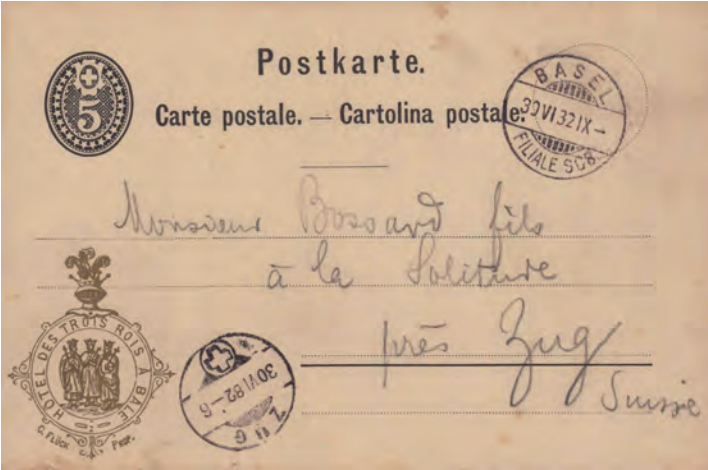 Postkarte.
5
Carte postale. — Cartolina postale.
BASEL
30 VI 82 IX –
FILIALE SCB
Monsieur Bossard fils
à la Solitude
près Zug
Suisse
HÔTEL DES TROIS ROIS À BALE
G. FLÜCK PROP.
ZUG
30 VI 82 – 6